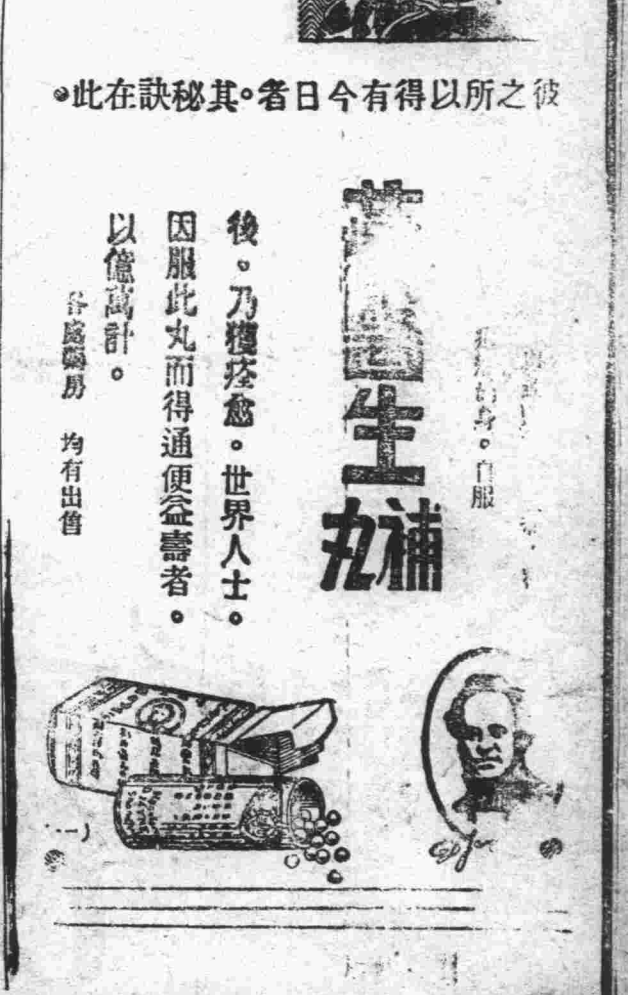 彼之所以得有今日者。其秘訣在此。
身。自服
生
補丸
後。乃獲痊愈。世界人士。
因服此丸而得通便益壽者。
以億萬計。
各處藥房 均有出售